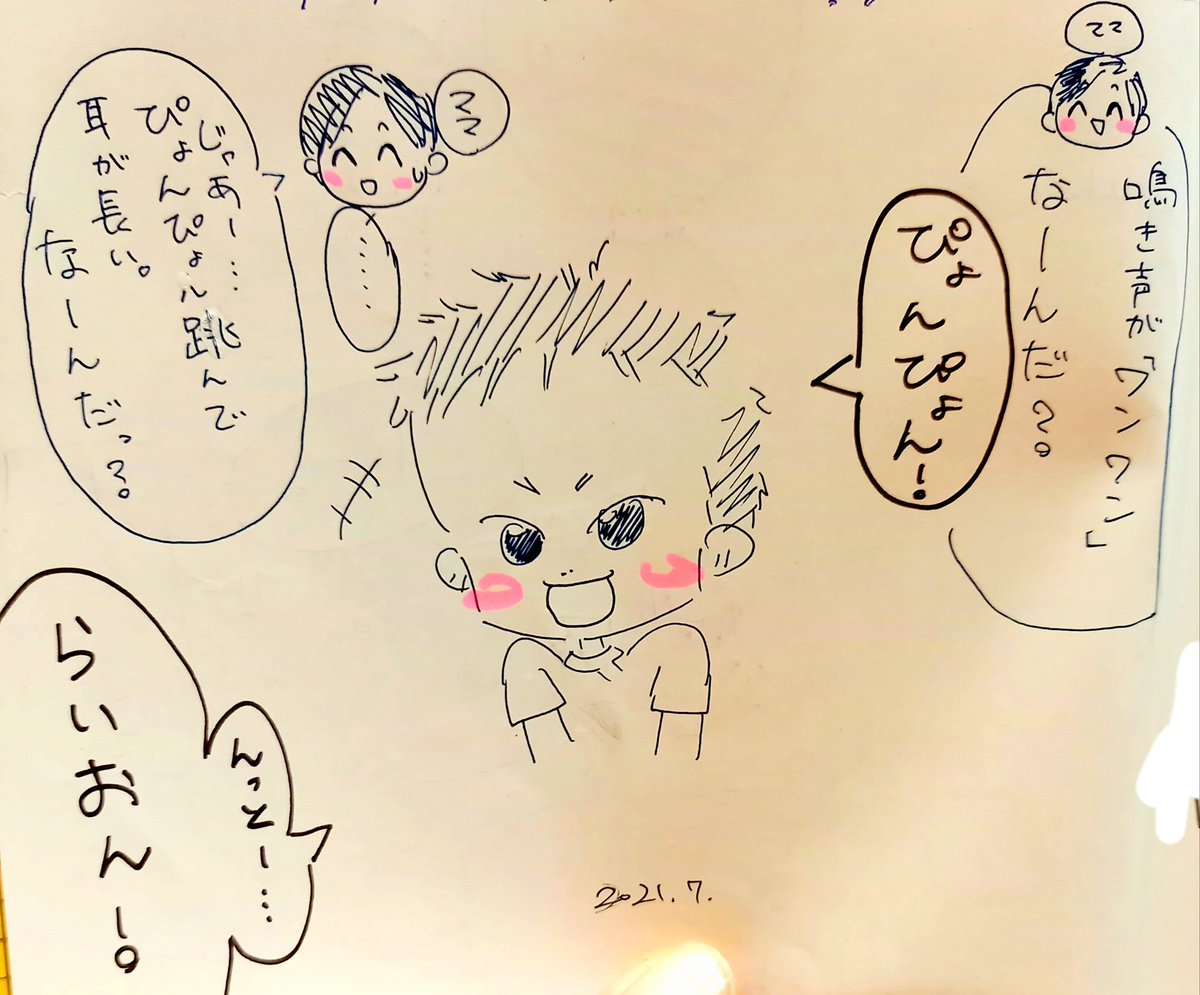 ママ
鳴き声が「ワンワン」
なーんだ?
ぴょんぴょん!
ママ
……
じゃあー…
ぴょんぴょん跳んで
耳が長い。
なーんだっ?
んっとー…
らいおん!
2021.7.